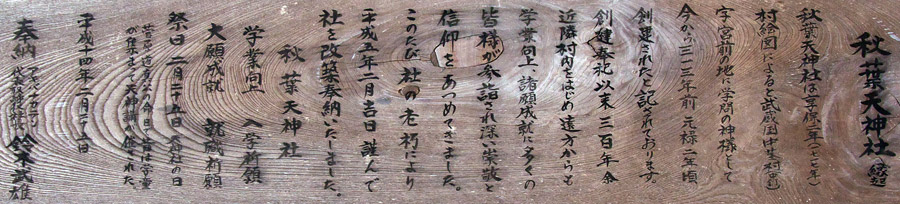 秋葉天神社 縁起
秋葉天神社は享保二年(一七一七年)
村絵図によると武蔵国中里村
字宮前の地に学問の神様として
今から三一三年前 元禄二年頃
創建されたと記されております。
創建奉祀以来三百年余
近隣村内をはじめ遠方からも
学業向上、諸願成就に多くの
皆様が参詣され深い崇敬と
信仰をあつめてきました。
このたび社の老朽により
平成五年二月吉日謹んで
社を改築奉納いたしました。
秋葉天神社
学業向上 入学祈願
大願成就 就職祈願
祭日 二月二十五日
菅原道真公の命日で昔は学童
が集まって天神講が催された
平成十四年二月
奉納 鈴木武雄